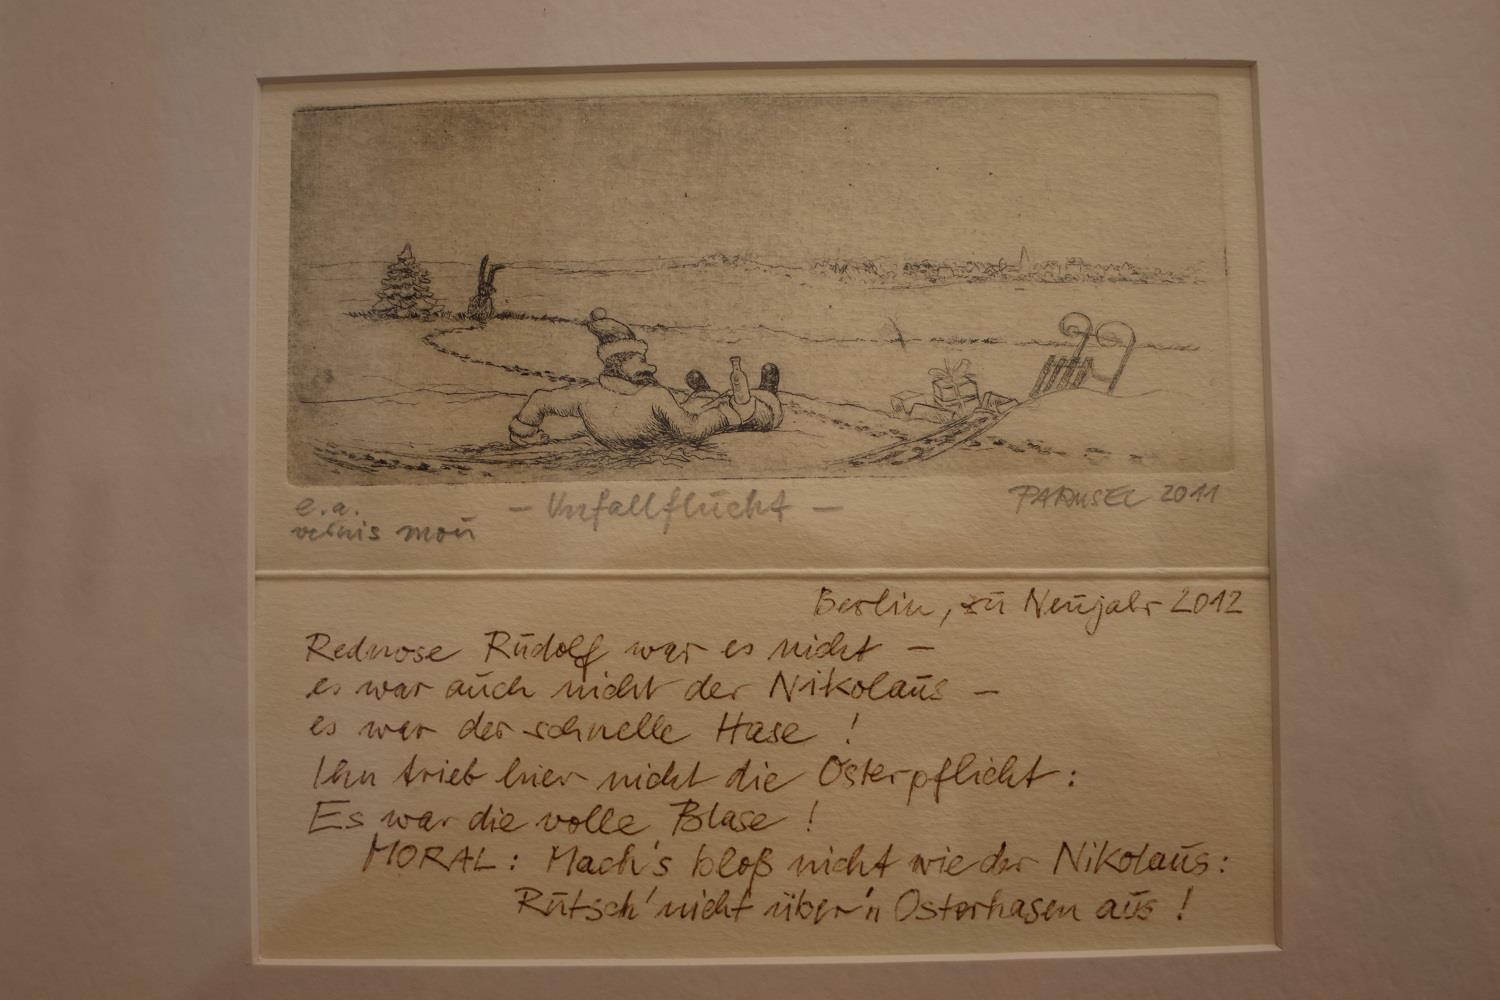 e.a.
vernis mou
– Unfallflucht –
PARMSEL 2011
Berlin, zu Neujahr 2012
Rednose Rudolf war es nicht –
es war auch nicht der Nikolaus –
es war der schnelle Hase !
Ihn trieb hier nicht die Osterpflicht :
Es war die volle Blase !
MORAL : Mach's bloß nicht wie der Nikolaus :
Rutsch' nicht über'n Osterhasen aus !